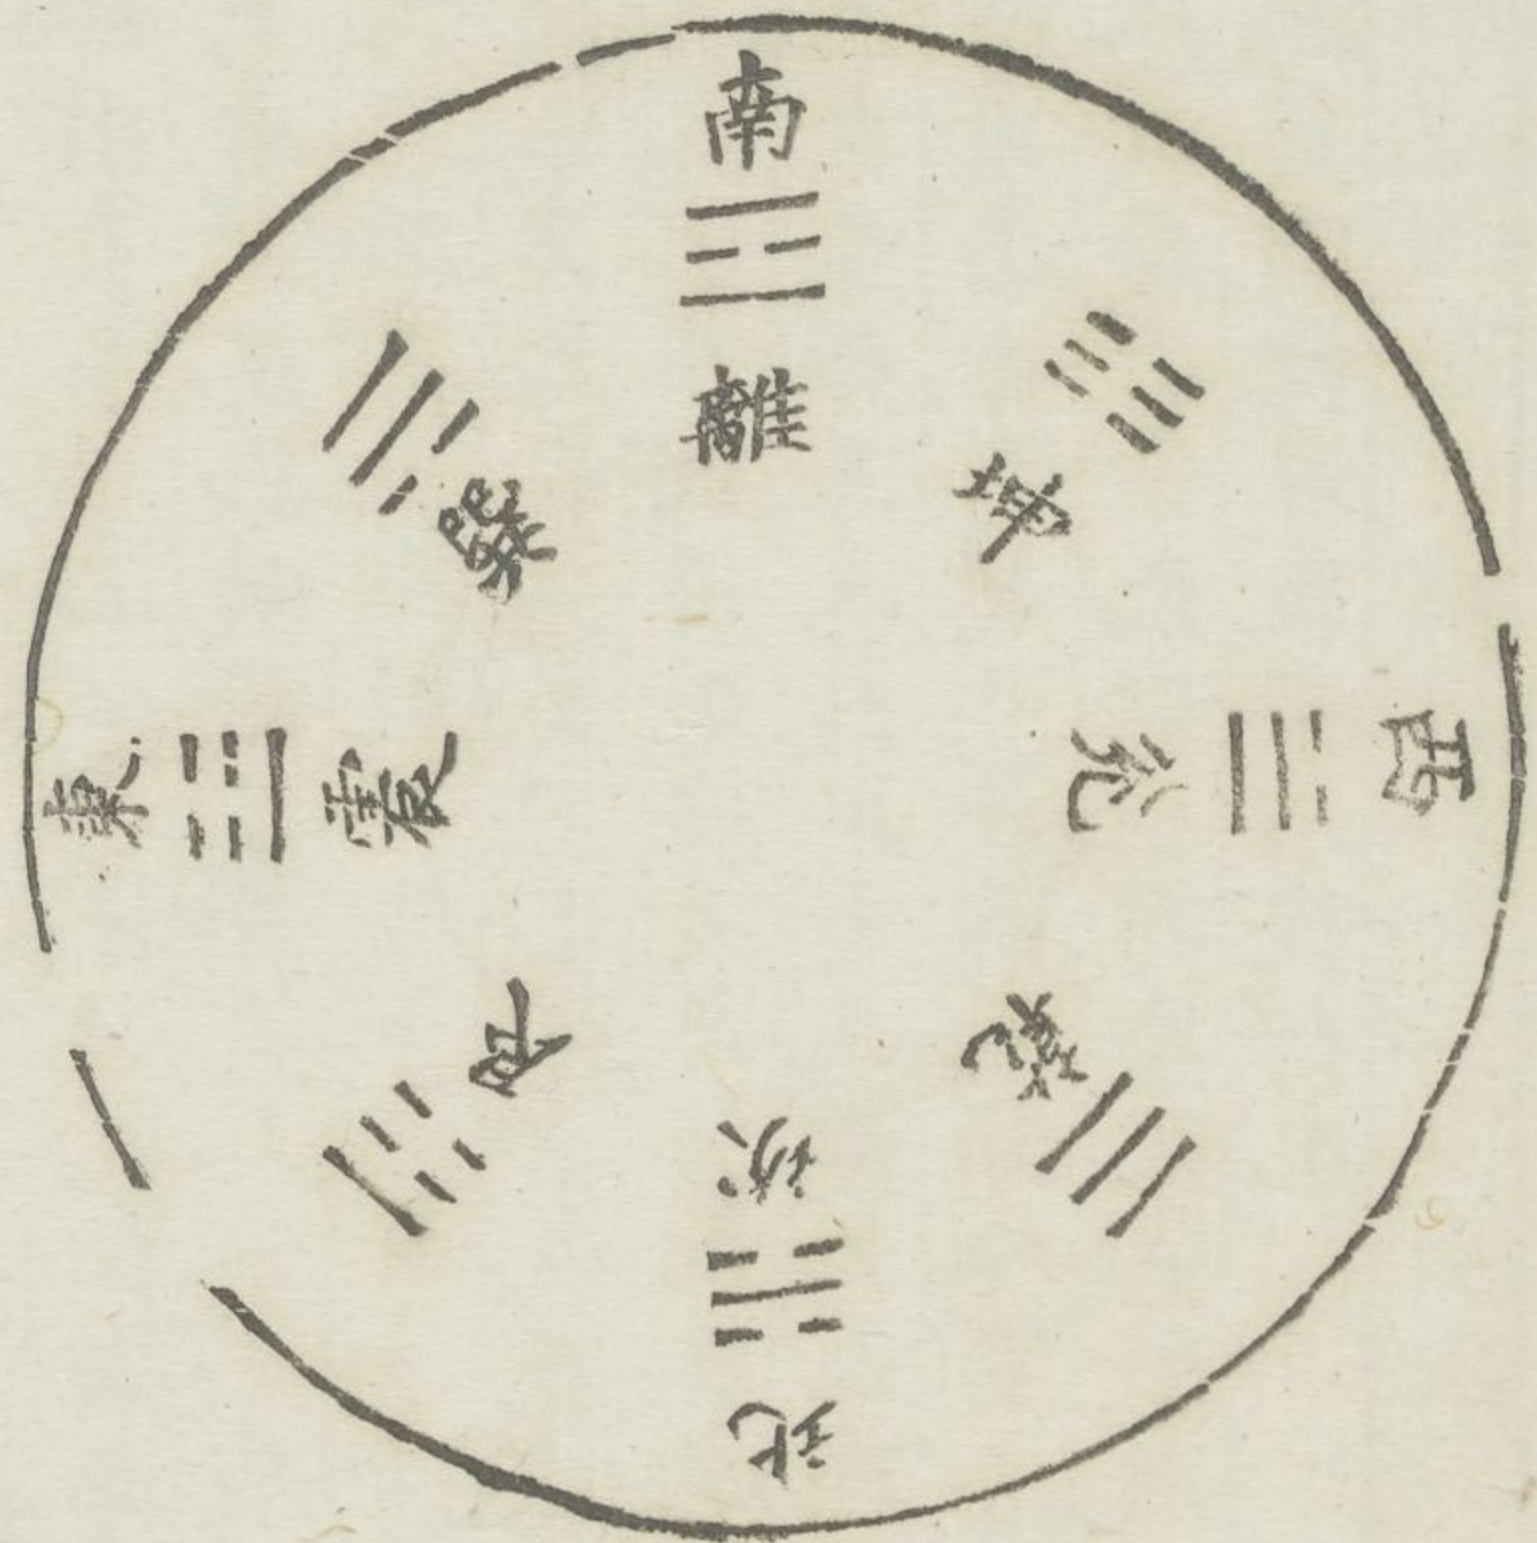 南
☲
離
☷
坤
西
☱
兌
☰
乾
坎
☵
北
艮
☶
東
☳
震
☴
巽